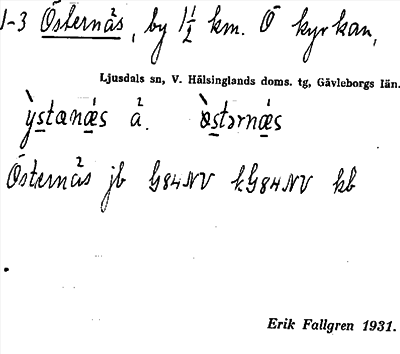 1-3 Östernås, by 1½ km. Ö kyrkan,
Ljusdals sn, V. Hälsinglands doms. tg, Gävleborgs län.
ỳstanǽs å. østərnǽs
Östernås jb G84NV kG84NV kb
Erik Fallgren 1931.